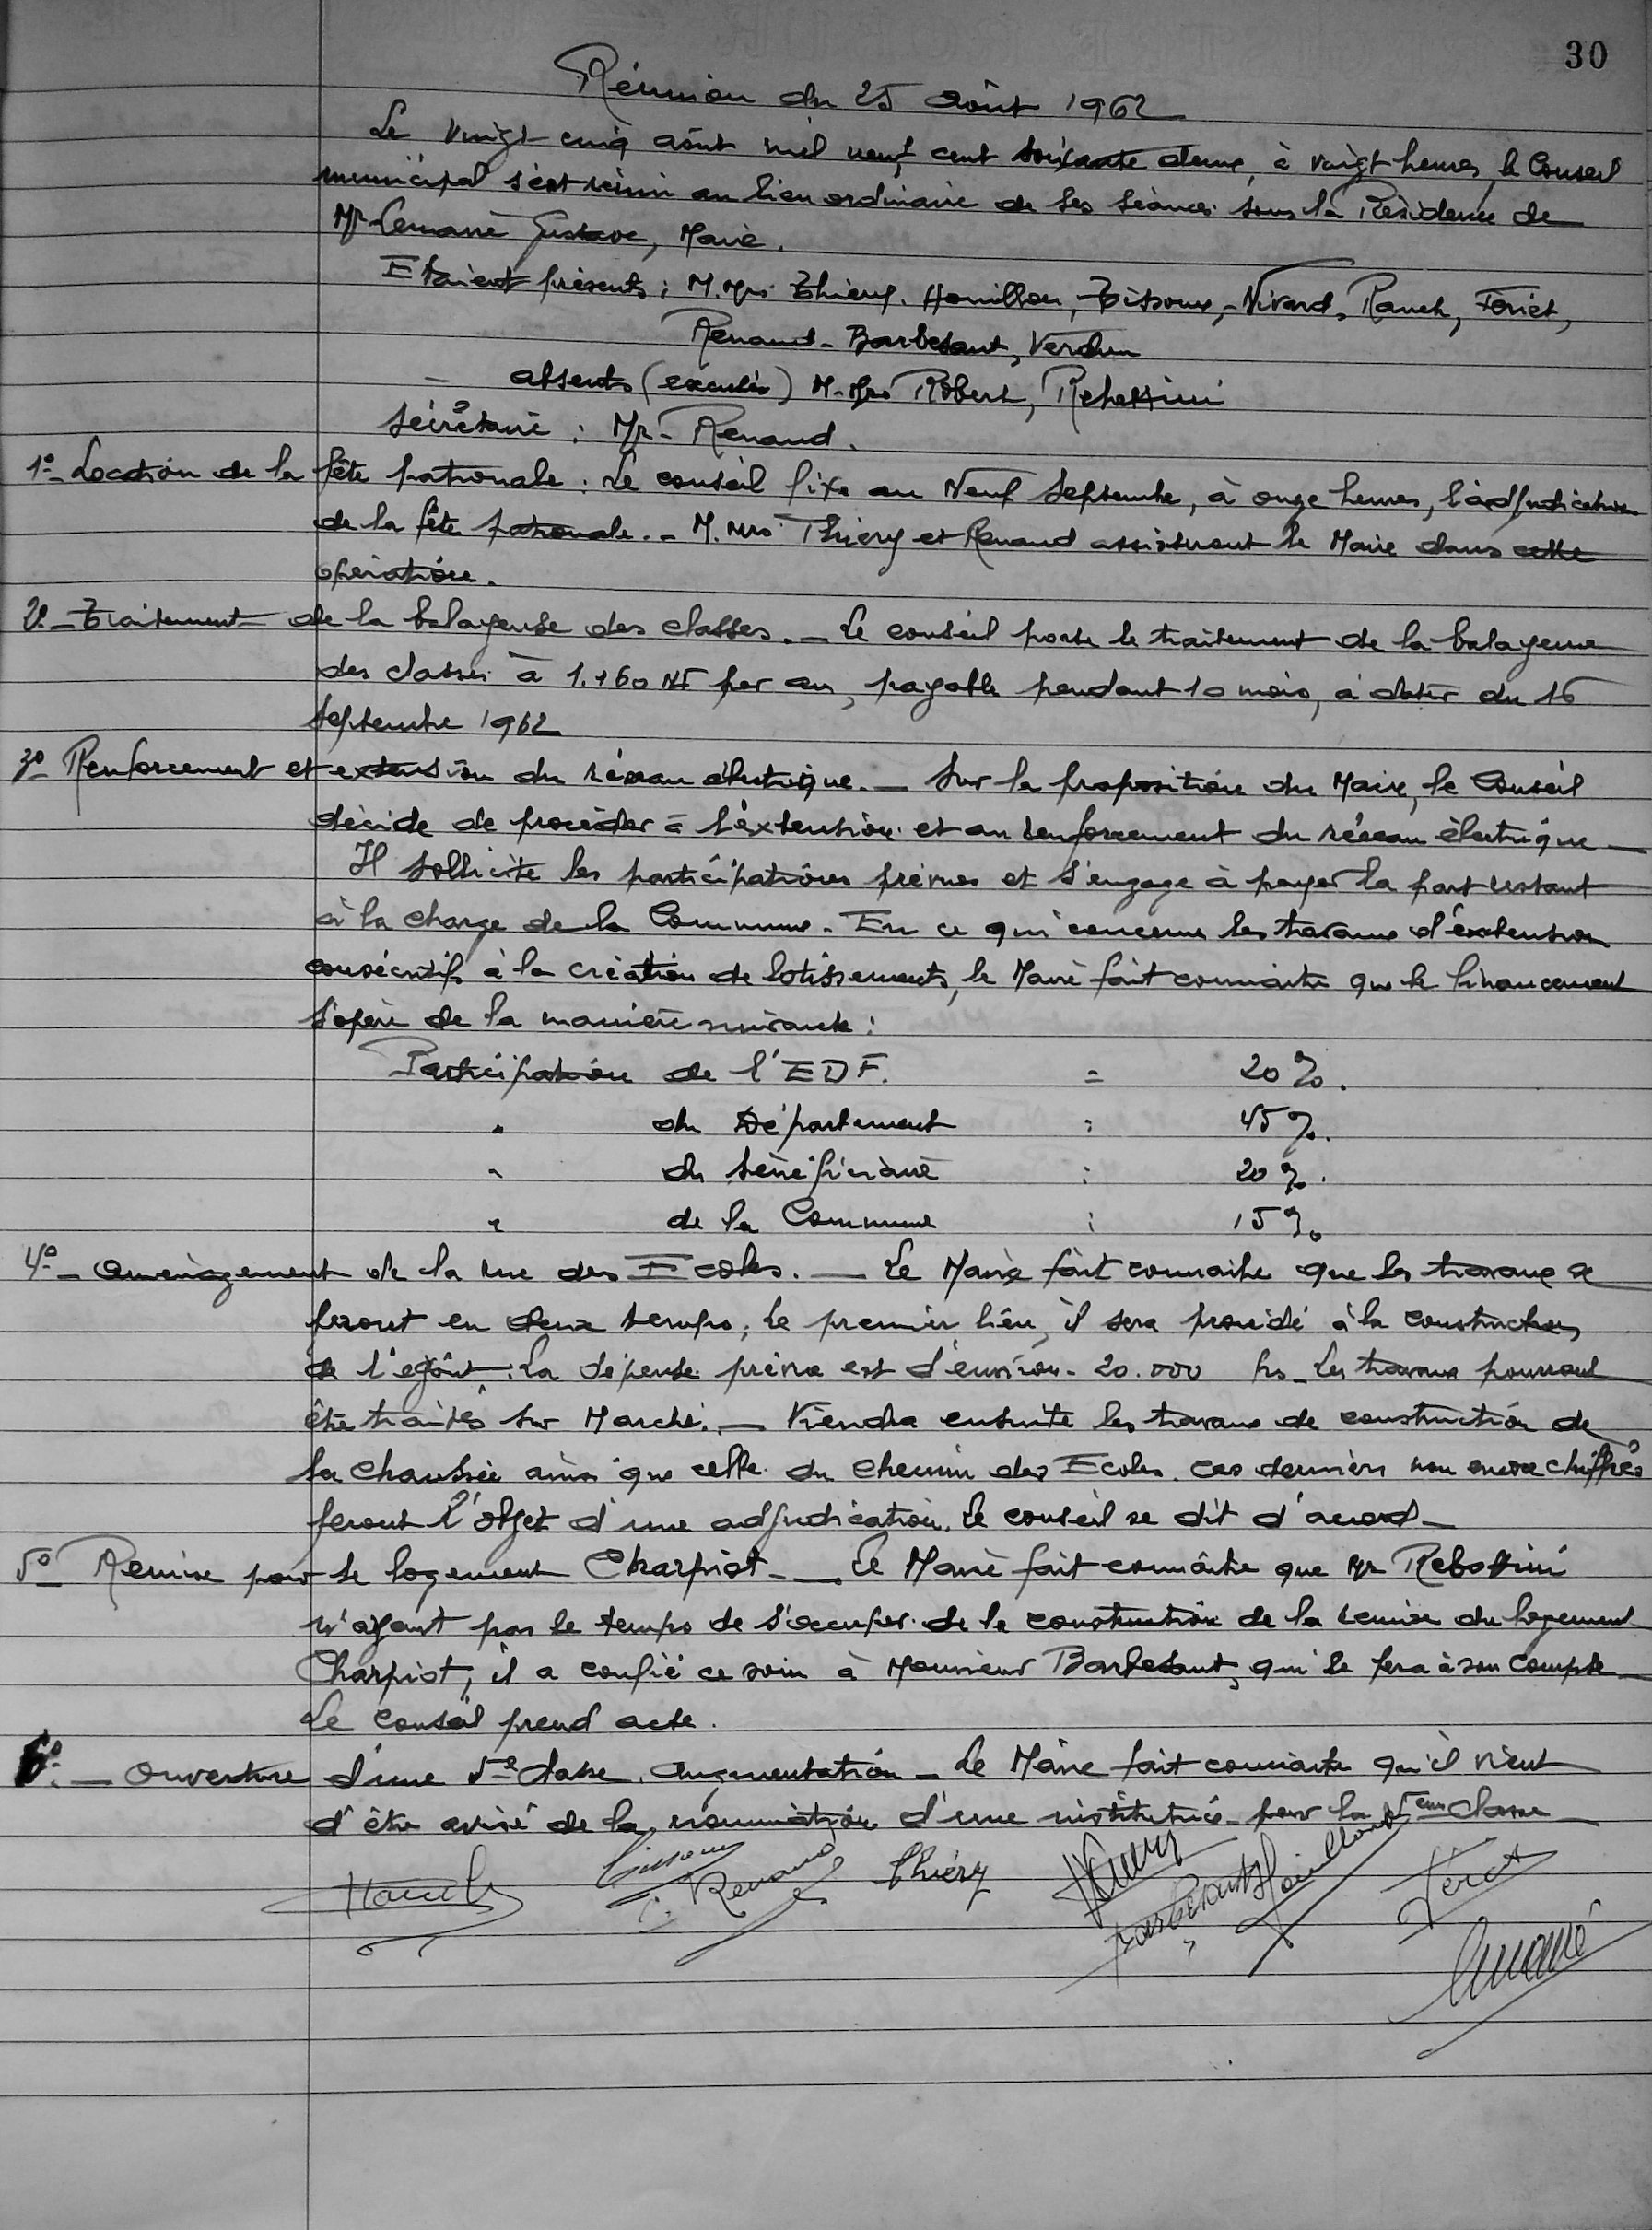 30
Réunion du 25 août 1962
Le vingt cinq août mil neuf cent soixante deux, à vingt heures, le Conseil
municipal s'est réuni au lieu ordinaire de ses séances sous la Présidence de
Mr Lemarié Gustave, Maire.
Etaient présents : M.Mrs Thiéry. Houillon, Tissoux, - Nivard, Rauch, Fériet,
Renaud - Barbesant, Verdun
- absents (excusés) M.Mrs Robert, Rebottini
Secrétaire : Mr - Renaud.
1º - Location de la fête patronale : Le conseil fixe au Neuf Septembre, à onze heures, l'adjudication
de la fête patronale. - M.Mrs Thiéry et Renaud assisteront le Maire dans cette
opération.
2º - Traitement de la balayeuse des classes. - Le conseil porte le traitement de la balayeuse
des classes à 1.160 NF par an, payable pendant 10 mois, à dater du 16
Septembre 1962
3º Renforcement et extension du réseau électrique. - Sur la proposition du Maire, le Conseil
décide de procéder à l'extension et au renforcement du réseau électrique -
Il sollicite les participations prévues et s'engage à payer la part restant
à la charge de la Commune. En ce qui concerne les travaux d'extension
consécutifs à la création de lotissements, le Maire fait connaître que le financement
s'opère de la manière suivante :
Participation de l'EDF. = 20 %.
" du Département : 45 %.
" du bénéficiaire : 20 %.
" de la Commune : 15 %
4º - Aménagement de la rue des Ecoles. - Le Maire fait connaître que les travaux se
feront en deux temps ; Le premier lieu, il sera procédé à la construction
de l'egôut : La dépense prévue est d'environ - 20.000 frs - Les travaux pourront
être traités sur Marché. - Viendra ensuite les travaux de construction de
la chaussée ainsi que celle du chemin des Ecoles. Ces derniers non encore chiffrés
feront l'objet d'une adjudication. Le conseil se dit d'accord -
5º Remise pour le logement Charpiot - - Le Maire fait connaître que Mr Rebottini
n'ayant pas le temps de s'occuper de la construction de la remise du logement
Charpiot, il a confié ce soin à Monsieur Barbesant, qui le fera à son compte -
Le conseil prend acte.
6º - Ouverture d'une 5e classe. Augmentation - Le Maire fait connaître qu'il vient
d'être avisé de la nomination d'une institutrice pour la 5ème classe
Rauch Tissoux Renaud Thiéry Barbesant Houillon Fériet Lemarié